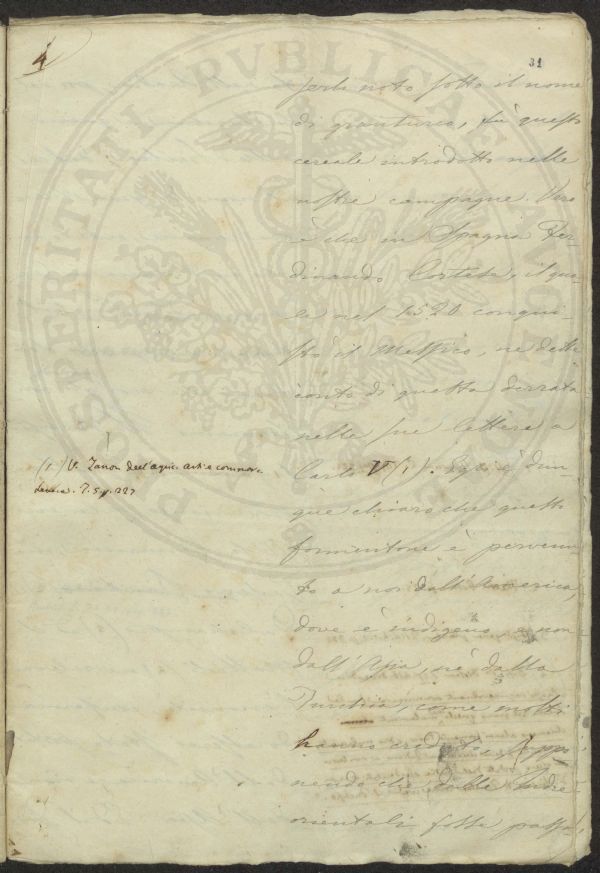 4
31
perli noto sotto il nome
di granturco, fu questo
cereale introdotto nelle
nostre campagne. Vero
è che in Spagna Fer-
dinando Cortese, il qua-
le nel 1520 conqui-
stò il Messico, ne dette
conto di questa derrata
nelle sue lettere a
Carlo V (1). Egli è dun-
que chiaro che questo
formentone è pervenu-
to a noi dall'America,
dove è indigeno e non
dall'Asia, nè dalla
Turchia, come molti
hanno creduto, suppo-
nendo che dalle Indie
orientali fosse passa
(1) V. Zanon dell'agric. arti e commer.
T. 5. p. 227
PROSPERITATI PUBLICAE AUGENDAE